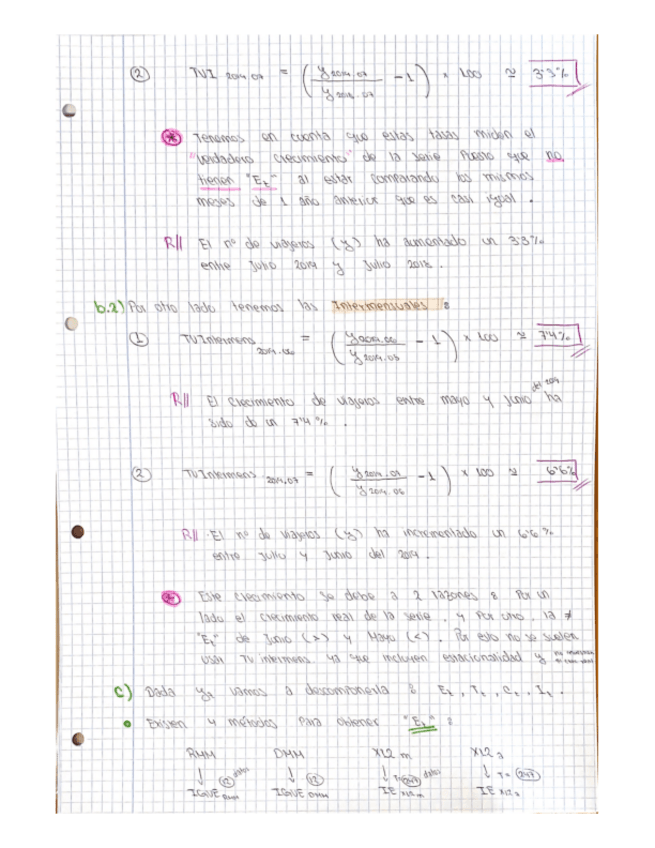 ② TVI 2014.07 = ( y 2014.07 / y 2013.07 - 1 ) x 100 ≃ 3'3%
* Tenemos en cuenta que estas tasas miden el
"verdadero crecimiento" de la serie puesto que no
tienen "Et" al estar comparando los mismos
meses de 1 año anterior que es casi igual.
R// El nº de viajeros (y) ha aumentado un 3'3%
entre Julio 2014 y Julio
b.2) Por otro lado tenemos las Intermensuales :
① TV Intermens 2014.06 = ( y 2014.06 / y 2014.05 - 1 ) x 100 ≃ 7'4%
R// El crecimiento de viajeros entre mayo y junio del 2014 ha
sido de un 7'4%.
② TV Intermens 2014.07 = ( y 2014.07 / y 2014.06 - 1 ) x 100 ≃ 6'6%
R// El nº de viajeros (y) ha incrementado un 6'6%
entre Julio y Junio del 2014.
* Este crecimiento se debe a 2 razones : Por un
lado el crecimiento real de la serie, y por otro, la ≠
"Et" de Junio (>) y Mayo (<). Por esto no se suelen
usar TV intermens. ya que incluyen estacionalidad y
c) Dada ya vamos a descomponerla : Et, Tt, Ct, It.
• Existen 4 métodos para obtener "Et" :
RMM DMM X12 m X12 a
↓ 12 datos ↓ 12 ↓ T= 247 datos ↓ T= 247
IGVE RMM IGVE DMM IE X12 m IE X12 a